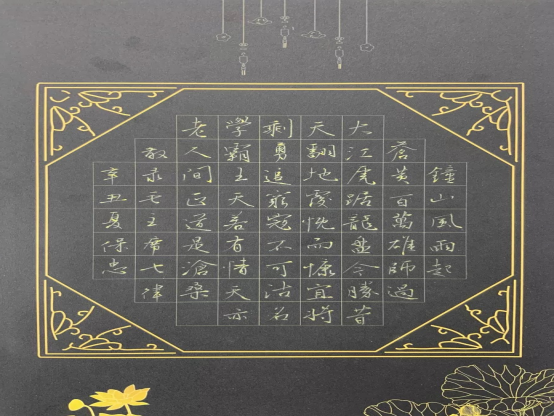 鐘山風雨起
蒼黃百萬雄師過
大江虎踞龍盤今勝昔
天翻地覆慨而慷宜將
剩勇追窮寇不可沽名
學霸王天若有情天亦
老人間正道是滄桑
敬录毛主席七律
辛丑夏保忠